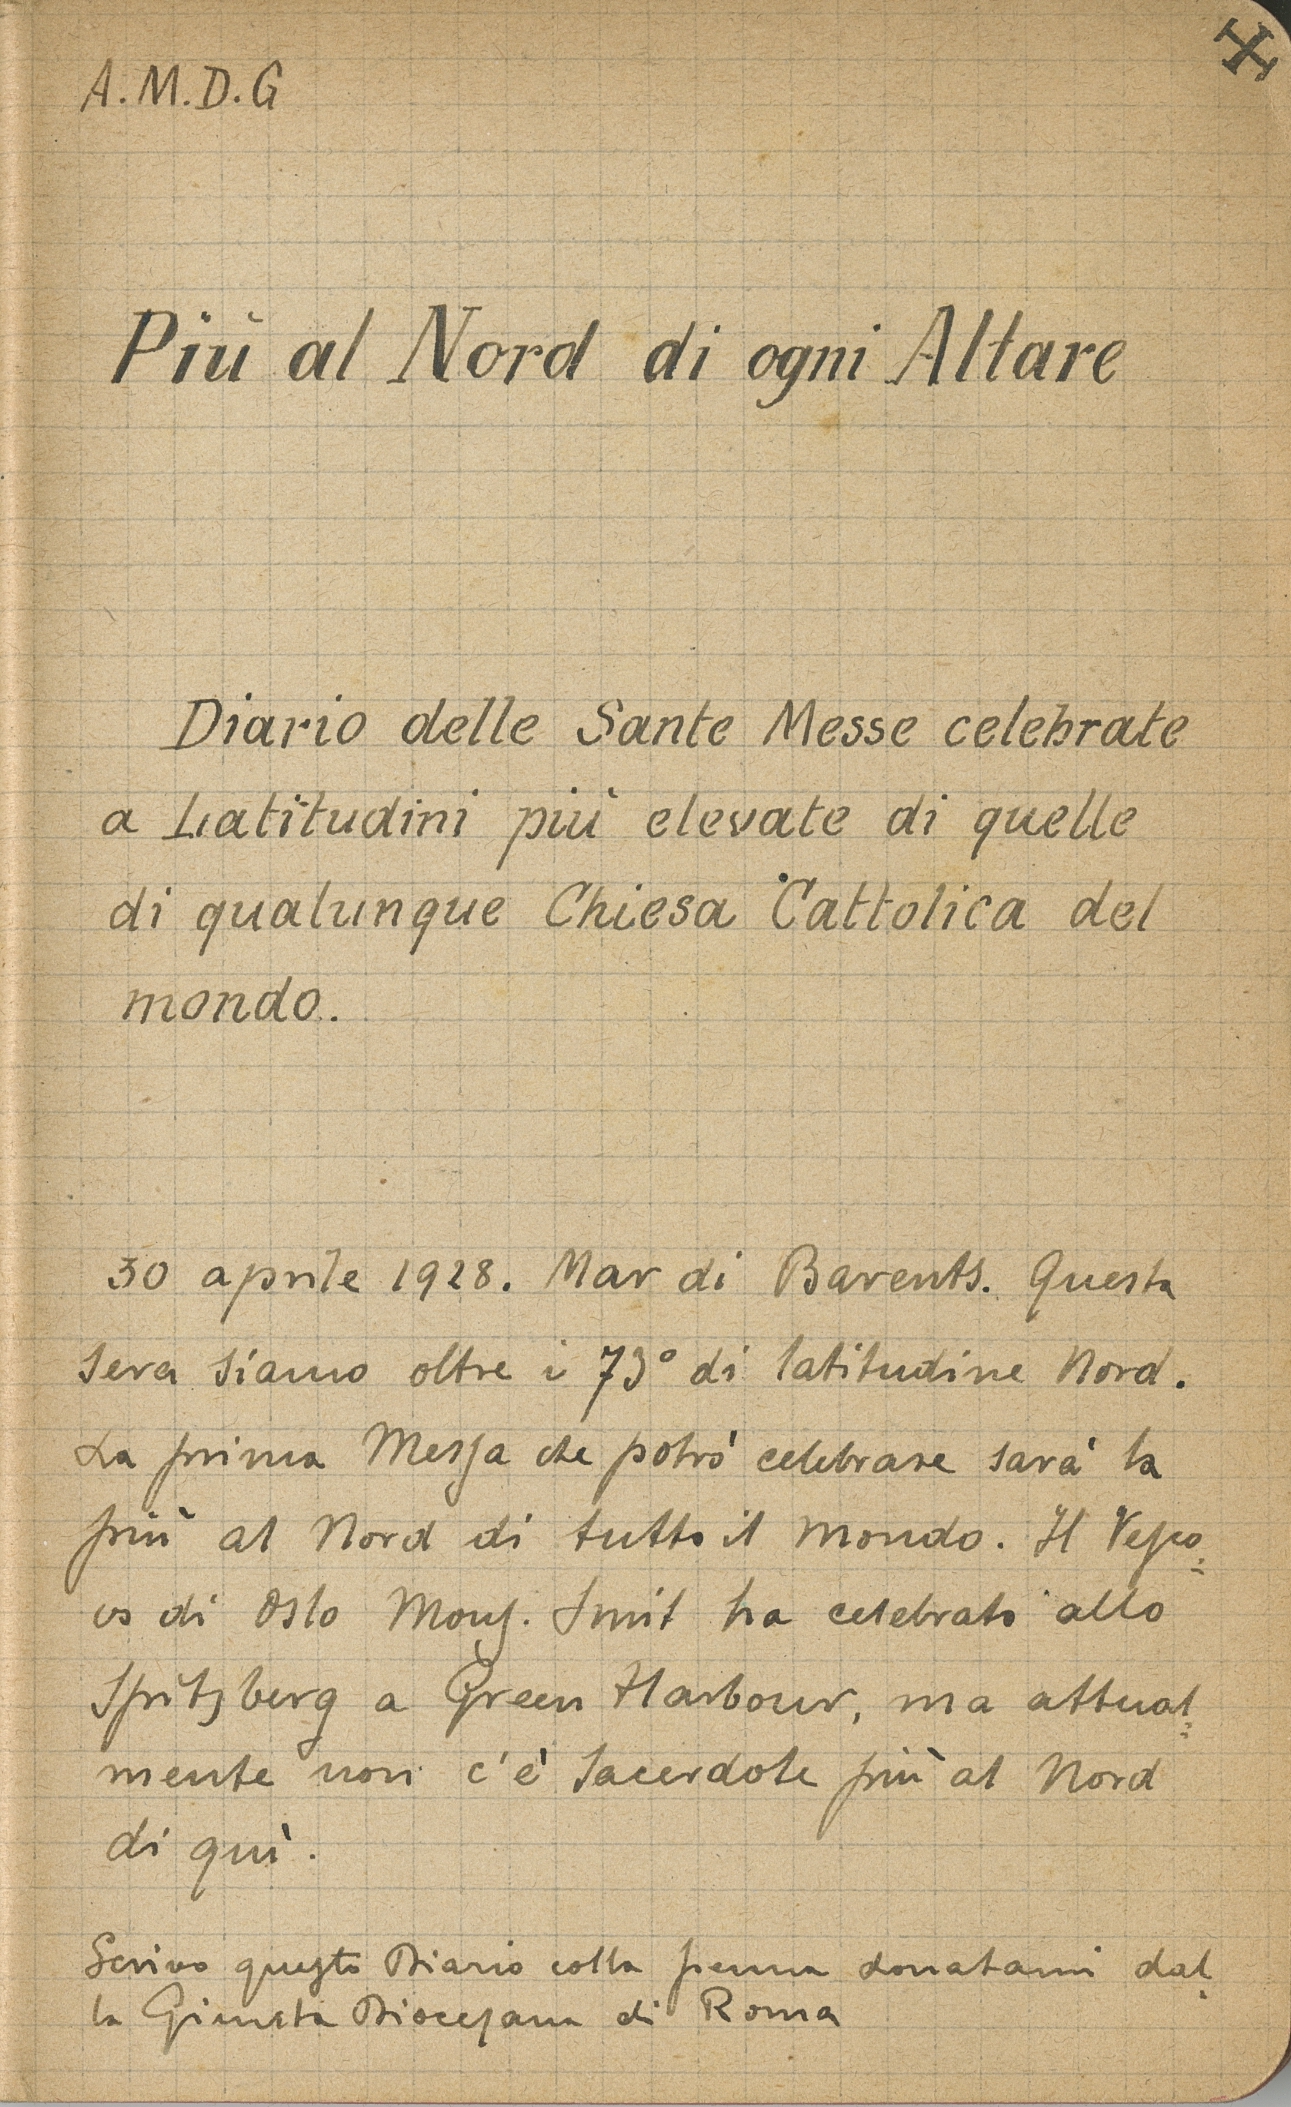 A.M.D.G
Più al Nord di ogni Altare
Diario delle Sante Messe celebrate
a Latitudini più elevate di quelle
di qualunque Chiesa Cattolica del
mondo.
30 aprile 1928. Mar di Barents. Questa
sera siamo oltre i 73° di latitudine Nord.
La prima Messa che potrò celebrare sarà la
più al Nord di tutto il mondo. Il Vesco=
vo di Oslo Mons. Smit ha celebrato allo
Spitzberg a Green Harbour, ma attual=
mente non c'è Sacerdote più al Nord
di quì.
Scrivo questo Diario colla penna donatami dal-
la Giunta Diocesana di Roma